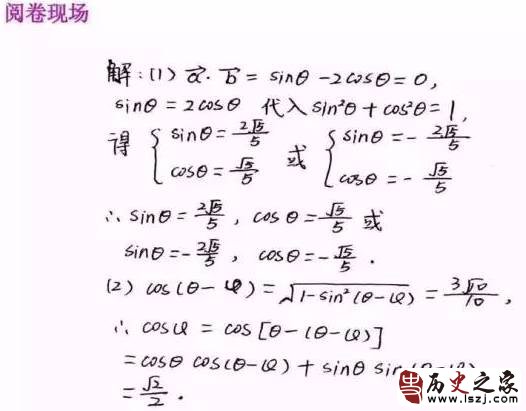 阅卷现场
解:(1) a⃗·b⃗ = sinθ - 2cosθ = 0,
sinθ = 2cosθ 代入 sin²θ + cos²θ = 1,
得 { sinθ = 2√5/5 cosθ = √5/5 或 { sinθ = -2√5/5 cosθ = -√5/5
∴ sinθ = 2√5/5 , cosθ = √5/5 或
sinθ = -2√5/5 , cosθ = -√5/5 .
(2) cos(θ-φ) = √(1-sin²(θ-φ)) = 3√10/10 ,
∴ cosφ = cos[θ-(θ-φ)]
= cosθ cos(θ-φ) + sinθ sin
= √2/2 .
历史之家
www.lszj.com